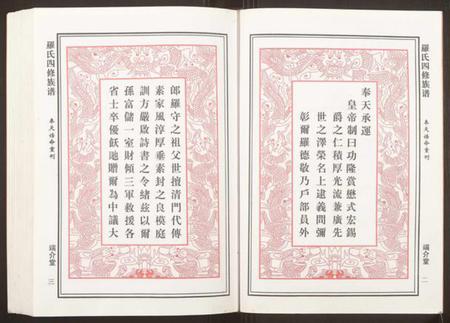 羅氏四修族谱
奉天誥命重刊
端介堂
二
奉天承運
皇帝制曰功隆賞懋式宏錫
爵之仁積厚光流兼廣先
世之澤榮名上逮義問彌
彰爾羅德敬乃戶部員外
郎羅守之祖父世擅清門代傳
素家風淳厚垂素封之良模庭
訓方嚴啟詩書之令緒茲以爾
孫富儲一室財傾三軍救援各
省士卒優飫貤贈爾為中議大
羅氏四修族谱
奉天誥命重刊
端介堂
三